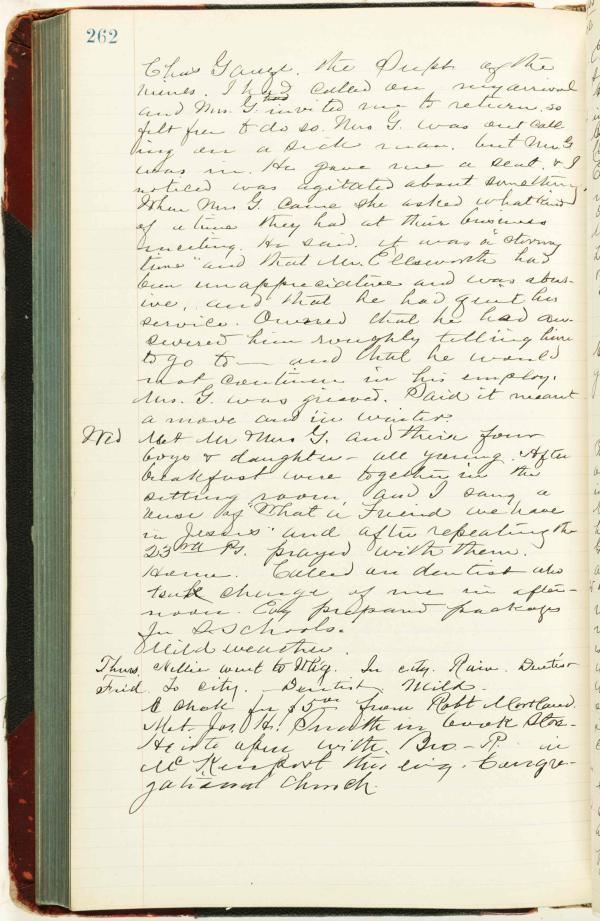 262
Chas Gauge. the Supt of the
mines. I had called on my arrival
and Mrs. G. had invited me to return. so
felt free to do so. Mrs G. was out call
ing on a sick man. but Mr. G
was in. He gave me a seat. & I
noticed was agitated about something
When Mrs G. came she asked what kind
of a time they had at their business
meeting. He said. it was a "stormy
time" and that Mr. Ellsworth had
been unappreciative and was abus-
ive, and that he had quit his
service. Owned that he had an-
swered him roughly telling him
to go to — and that he would
not continue in his employ.
Mrs. G. was grieved. Said it meant
a move and in winter.
Wed Met Mr Mrs G. and their four
boys & daughter - all young. After
breakfast were together in the
sitting room, and I sang a
verse of "What a Friend we have
in Jesus" and after repeating the
23rd Ps. prayed with them.
Home. Called on dentist who
took charge of me in after-
noon. Evg prepared packages
for S. Schools.
Mild weather.
Thurs. Nellie went to Whg. In city. Rain. Dentist
Frid. To city. Dentist. Mild.
for $5.00 from Robt
Met. Jos. H. Smith in book store
with Bro-R. in
McKeesport this evg. Congre-
gational Church.